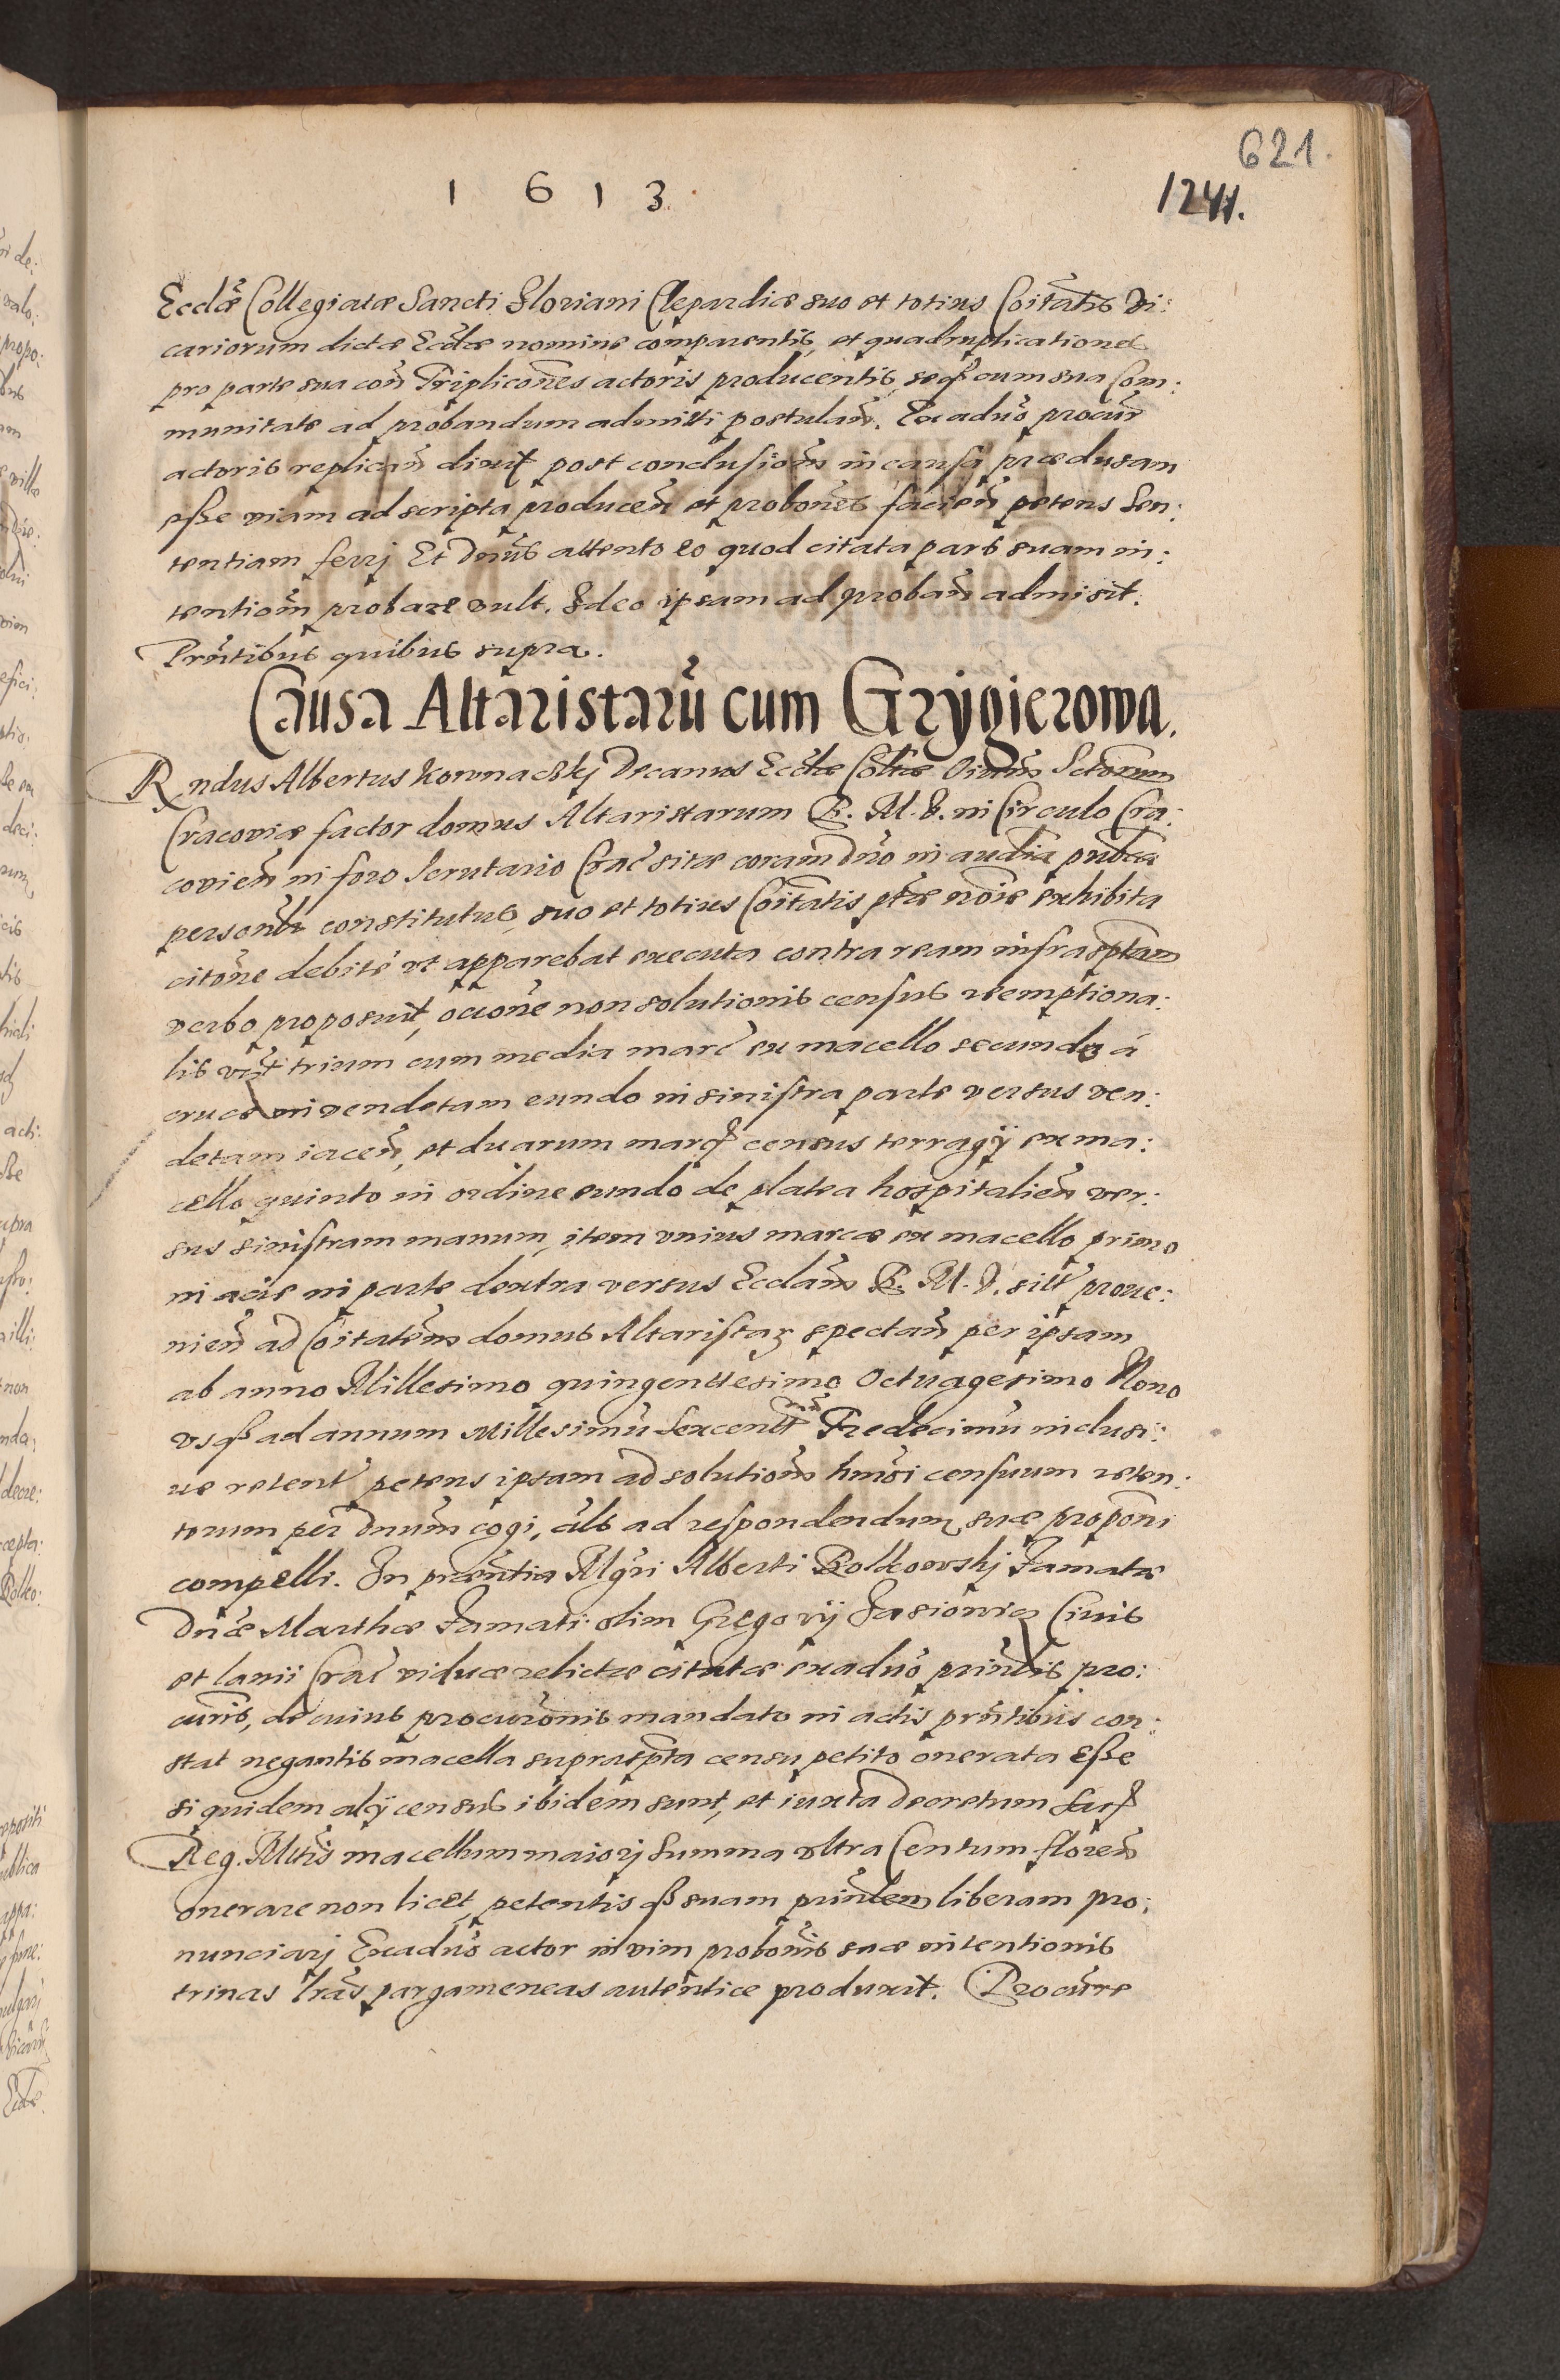 621.
1 6 1 3.
1241.
Eccłæ Collegiatæ Sancti Floriani Clepardiæ suo et totius Coitatis Vi:
cariorum dictæ Ecclæ nomine comparentis, et quadruplicationes
pro parte sua con Triplicones actoris producentis, seqꝫ cum sua Com:
munitate ad probandum admitti postulan. Ex aduo procur
actoris replican dixit post conclusiom in causa præclusam
esse viam ad scripta producen et probones facien petens Sen:
tentiam ferrj Et Dnus attento eo quod citata pars suam in:
tentiom probare vult. Ideo ipsam ad proban admisit.
Prntibus quibus supra.
Causa Altaristarū cum Grzygierowa.
Rndus Albertus Kownackj Decanus Ecclæ Colltæ Oium Sctorum
Cracoviæ factor domus Altaristarum B. M. V. in Circulo Cra:
covien in foro Scrutario Crac sitæ coram Dno in audia publica
personlr constitutus, suo et totius Coitatis ptæ noie exhibita
citone debite vt apparebat executa contra ream infrasptam
verbo proposuit, occone non solutionis census reemptiona:
lis vizt trium cum media marc ex macello secundo á
cruce in vendetam eundo in sinistra parte versus ven:
detam iacen, et duarum marcꝫ census terragÿ ex ma:
cello quinto in ordine eundo de platea hospitalien ver:
sus sinistram manum, item vnius marcæ ex macello primo
in acie in parte dextra versus Ecclam B. M. V. sitt proue:
nien ad Coitatem domus Altaristaꝝ spectan per ipsam
ab anno Millesimo quingentesimo Octuagesimo Nono
vsqꝫ ad annum Millesimū Sexcentmū Tredecimū inclusi:
ue retent petens ipsam ad solutiom hmoi censuum reten:
torum per Dnum cogi, als ad respondendum suæ proponi
compelli. In præntia Mgri Alberti Bolkowskj Famatæ
Dnæ Marthæ Famati olim Gregorÿ Jasionicz Ciuis
et lanii Crac viduæ relictæ citatæ ex aduo prinlis pro:
curis, de cuius procuronis mandato in actis prntibus con:
stat negantis macella suprasptа censu petito onerata esse
si quidem alÿ census ibidem sunt, et iuxta decretum Sacꝫ
Reg. Mttis macellum maiorj summa vltra Centum floren
onerare non licet, petentisqꝫ suam prinlem liberam pro:
nunciarj Ex aduo actor in vim probonis suæ intentionis
trinas lras pargameneas autentice produxit. Procure